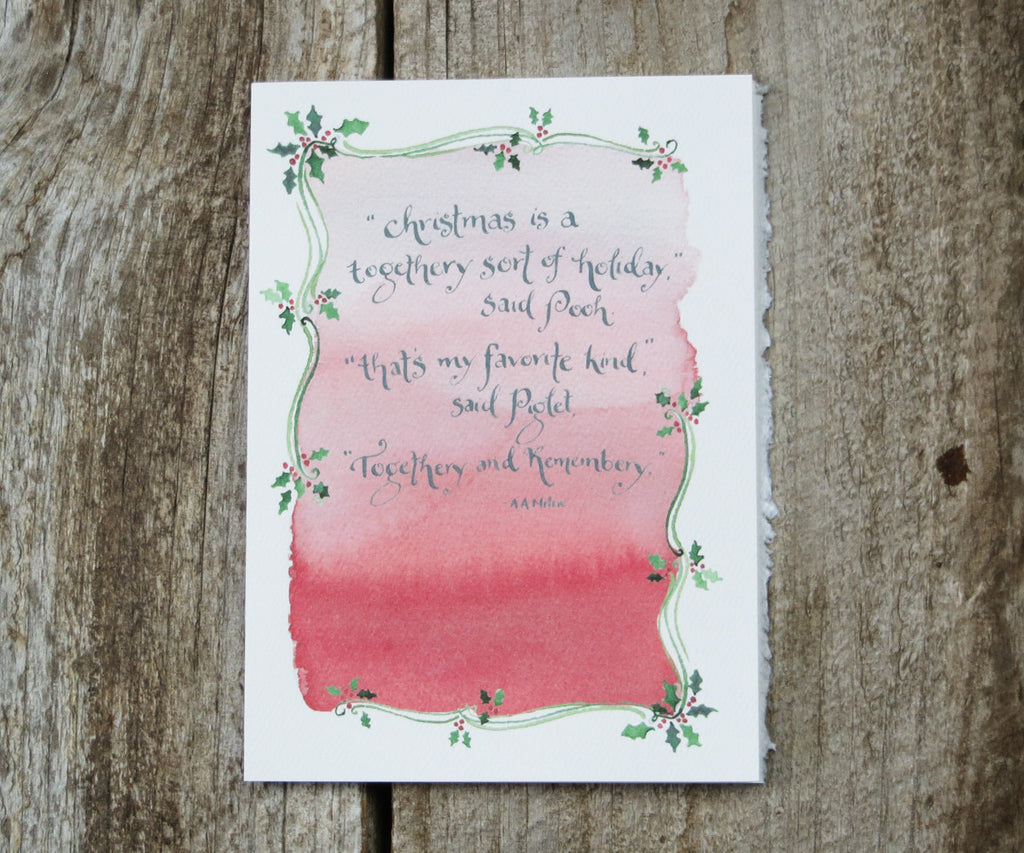 "Christmas is a
togethery sort of holiday,"
said Pooh.
"that's my favorite kind,"
said Piglet.
"Togethery and Remembery."
-A A Milne